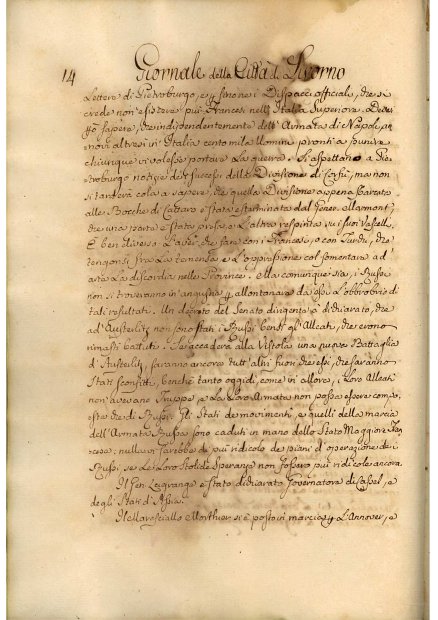 14 Giornale della Città di Livorno
Lettere di Pietroburgo, e i Dispacci officiali, che si
crede non esistere più Francesi nell'Italia Superiore.
sapere, che indipendentemente dell'Armata di Napoli,
novi altresì in Italia cento mila Uomini pronti a punire
chiunque vi volesse portare la guerra. Si aspettano a Pie-
troburgo notizie de' successi della Divisione di Corfù, ma non
si tarderà colà a sapere, che quella Divisione appena
alle Bocche di Cattaro è stata esterminata dal Gener. Marmont,
che una parte è stata presa, e l'altra respinta su i suoi Vascelli.
È ben diverso l'affare, che fare con i Francesi, o con Turchi, che
tengonsi fra la temenza e l'oppressione col fomentare ad
arte la discordia nelle Province. Ella comunque sia, i Russi
non si troveranno in angustia allontanare da essi l'obbrobrio di
tali resultati. Un decreto del Senato dirigente à dichiarato, che
ad Austerlitz non sono stati i Russi bensì gl'Alleati, che erono
rimasti battuti. Se accaderà alla Vistola una nuova Battaglia
d'Austerlitz, saranno ancora tutt'altri fuori che essi, che saranno
stati sconfitti, benchè tanto oggidì, come in allora, i loro Alleati
non avevano Truppe, e la loro Armata non possa essere compo-
sta che di Russi. Gli Stati de movimenti, e quelli della marcia
dell'Armata Russa sono caduti in mano dello Stato Maggiore Fran-
cese; nulla vi sarebbe di più ridicolo de piani d'operazione dei
Russi, se le loro stolide speranze non fossero più ridicole ancora.
Il Gen. Lagrange è stato dichiarato Governatore di Cassel, e
degli Stati d'Assia.
Il Maresciallo Morthier si è posto in marcia L'Annover, e